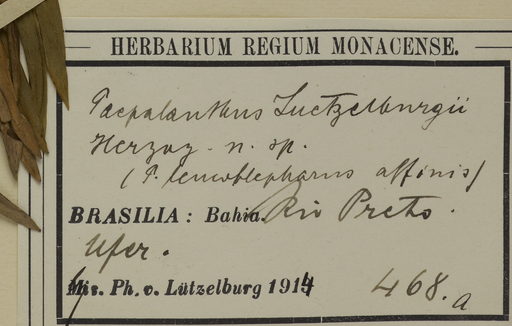 HERBARIUM REGIUM MONACENSE.
Paepalanthus Luetzelburgii
Herzog. n. sp.
(P. leucoblepharus affinis)
BRASILIA: Bahia. Rio Preto.
Ufer.
Mis. Ph. v. Lützelburg 1914 468.a